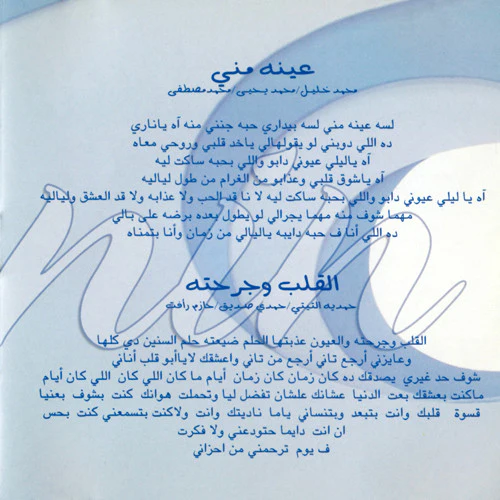 عينه مني
محمد خليل/محمد يحيى/محمد مصطفى
لسه عينه مني لسه بيداري حبه جنني منه آه ياناري
ده اللي دوبني لو يقولهالي ياخد قلبي وروحي معاه
آه ياليلي عيوني دابو واللي بحبه ساكت ليه
آه ياشوق قلبي وعذابو من الغرام من طول لياليه
آه يا ليلي عيوني دابو واللي بحبه ساكت ليه لا نا قد الحب ولا عذابه ولا قد العشق ولياليه
مهما شوف منه مهما يجرالي لو يطول بعده برضه على بالي
ده اللي أنا ف حبه دايبه ياليالي من زمان وأنا بتمناه
القلب وجرحته
حمديه التيتي/حمدي صديق/حازم رأفت
القلب وجرحته والعيون عذبتها الحلم ضيعته حلم السنين دي كلها
وعايزني أرجع تاني أرجع من تاني واعشقك لاياأبو قلب أناني
شوف حد غيري يصدقك ده كان زمان كان زمان أيام ما كان اللي كان اللي كان أيام
ماكنت بعشقك بعت الدنيا عشانك علشان تفضل ليا وتحملت هوانك كنت بشوف بعنيا
قسوة قلبك وانت بتبعد وبتنساني ياما ناديتك وانت ولاكنت بتسمعني كنت بحس
ان انت دايما حتودعني ولا فكرت
ف يوم ترحمني من احزاني
nin